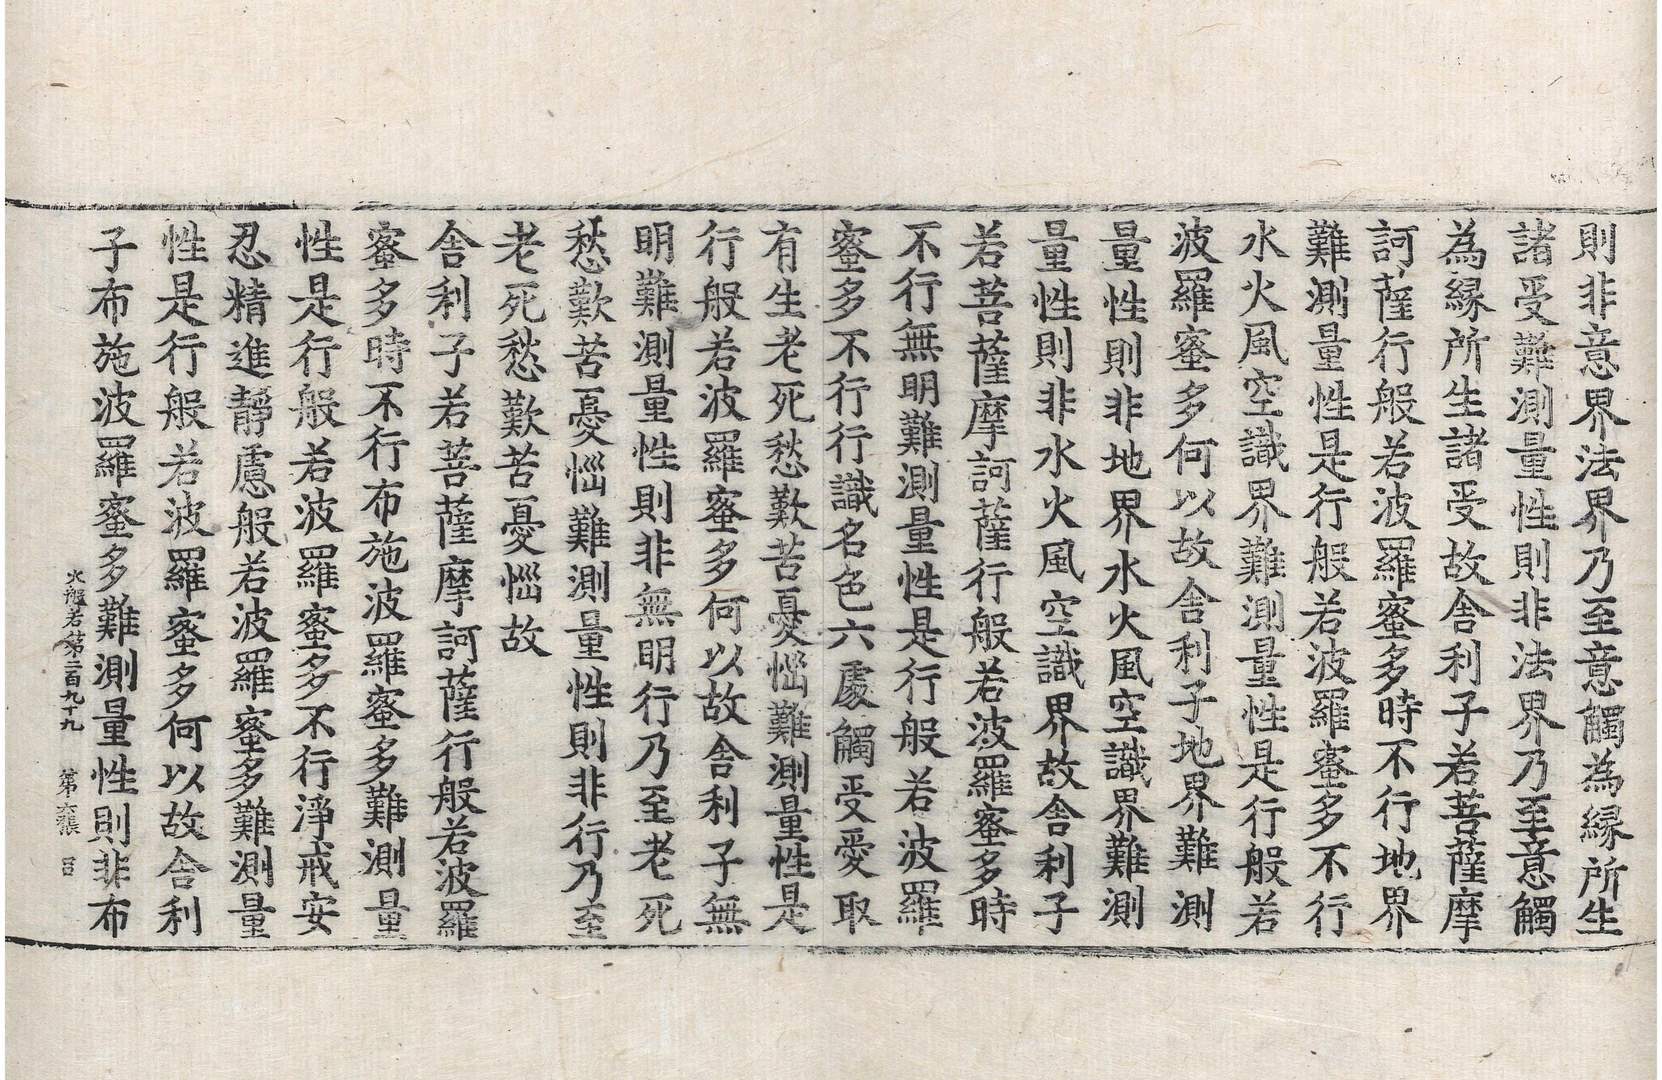 則非意界法界乃至意觸為緣所生
諸受難測量性則非法界乃至意觸
為緣所生諸受故舍利子若菩薩摩
訶薩行般若波羅蜜多時不行地界
難測量性是行般若波羅蜜多不行
水火風空識界難測量性是行般若
波羅蜜多何以故舍利子地界難測
量性則非地界水火風空識界難測
量性則非水火風空識界故舍利子
若菩薩摩訶薩行般若波羅蜜多時
不行無明難測量性是行般若波羅
蜜多不行行識名色六處觸受愛取
有生老死愁歎苦憂惱難測量性是
行般若波羅蜜多何以故舍利子無
明難測量性則非無明行乃至老死
愁歎苦憂惱難測量性則非行乃至
老死愁歎苦憂惱故
舍利子若菩薩摩訶薩行般若波羅
蜜多時不行布施波羅蜜多難測量
性是行般若波羅蜜多不行淨戒安
忍精進靜慮般若波羅蜜多難測量
性是行般若波羅蜜多何以故舍利
子布施波羅蜜多難測量性則非布
大般若第二百九十九 第六張 呂